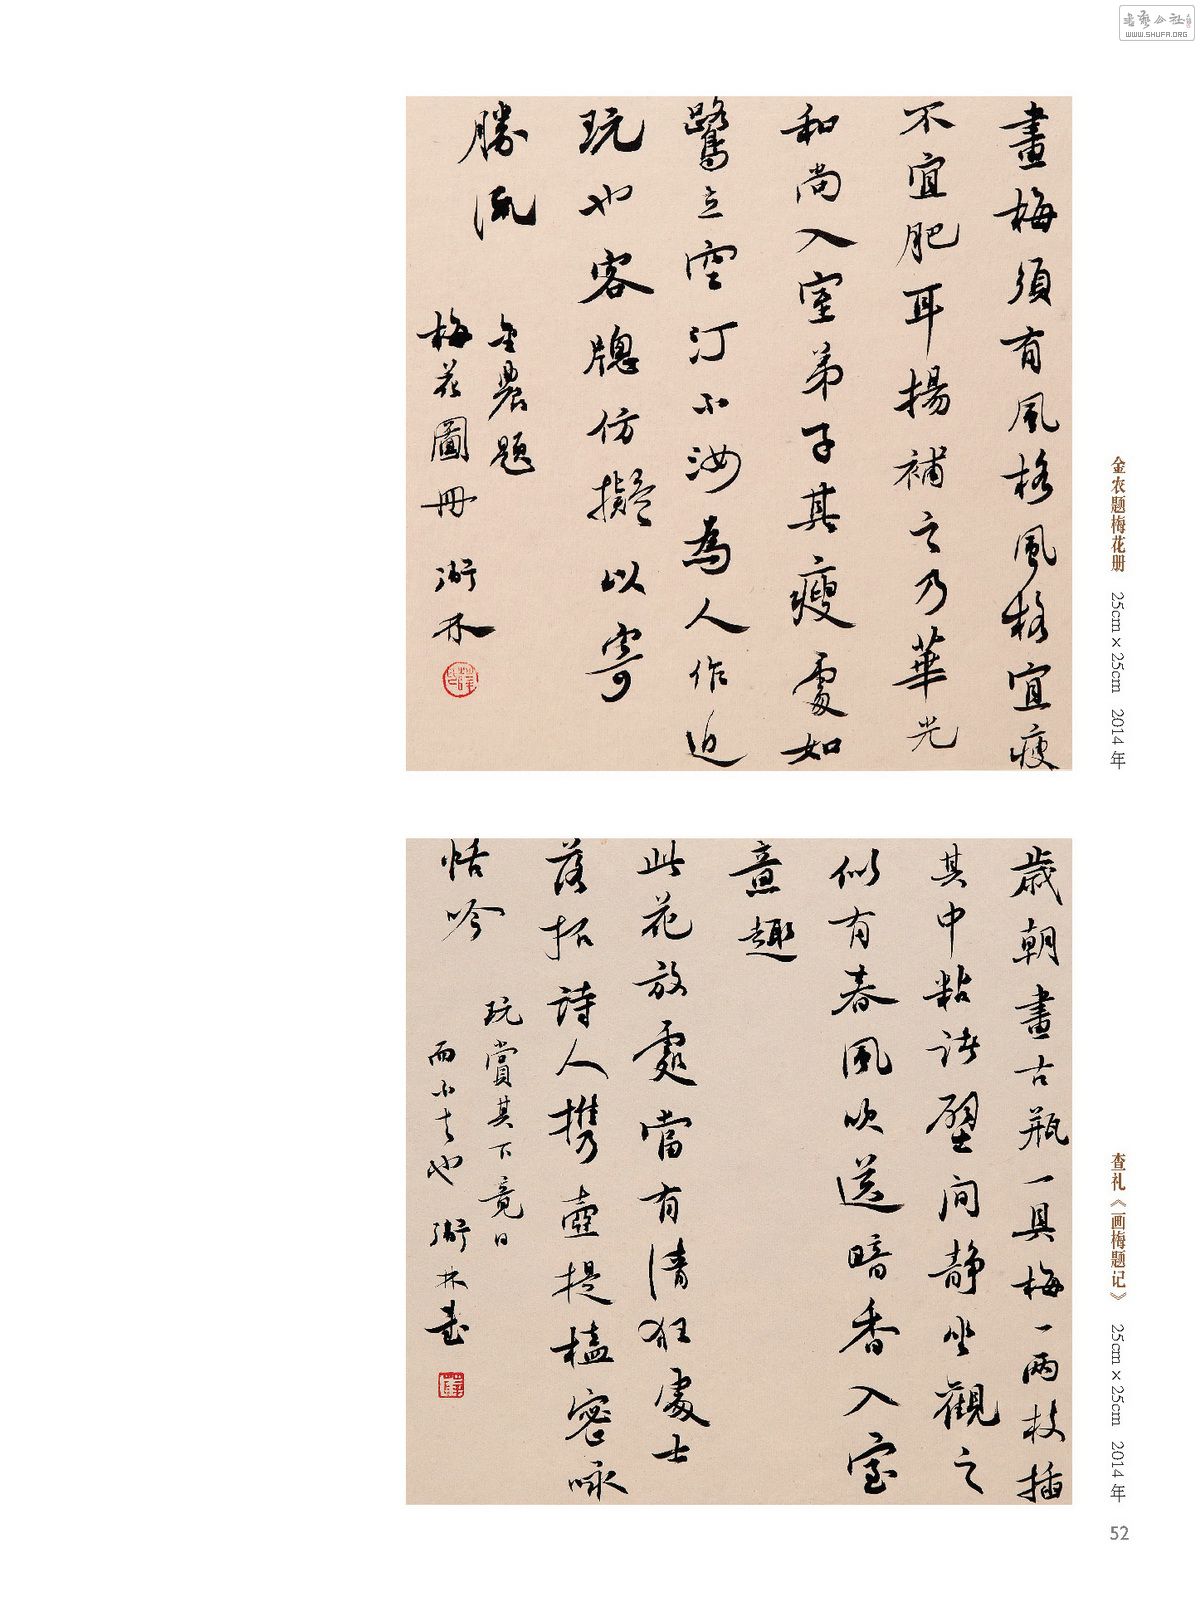 書藝公社
WWW.SHUFA.ORG
畫梅須有風格風格宜瘦
不宜肥耳揚補之乃華光
和尚入室弟子其瘦處如
鷺立空汀不汝為人作近
玩也客牕仿擬以寄
勝流
金農題
梅花圖冊 衡林
金农题梅花册 25cm×25cm 2014年
歲朝畫古瓶一具梅一兩枝插
其中粘諸壁间静坐觀之
似有春風吹送暗香入室
意趣
此花放處當有清狂處士
落拓詩人携壺提榼密咏
恬吟
玩賞其下竟日
而不去也 衡林書
查礼《画梅题记》 25cm×25cm 2014年
52